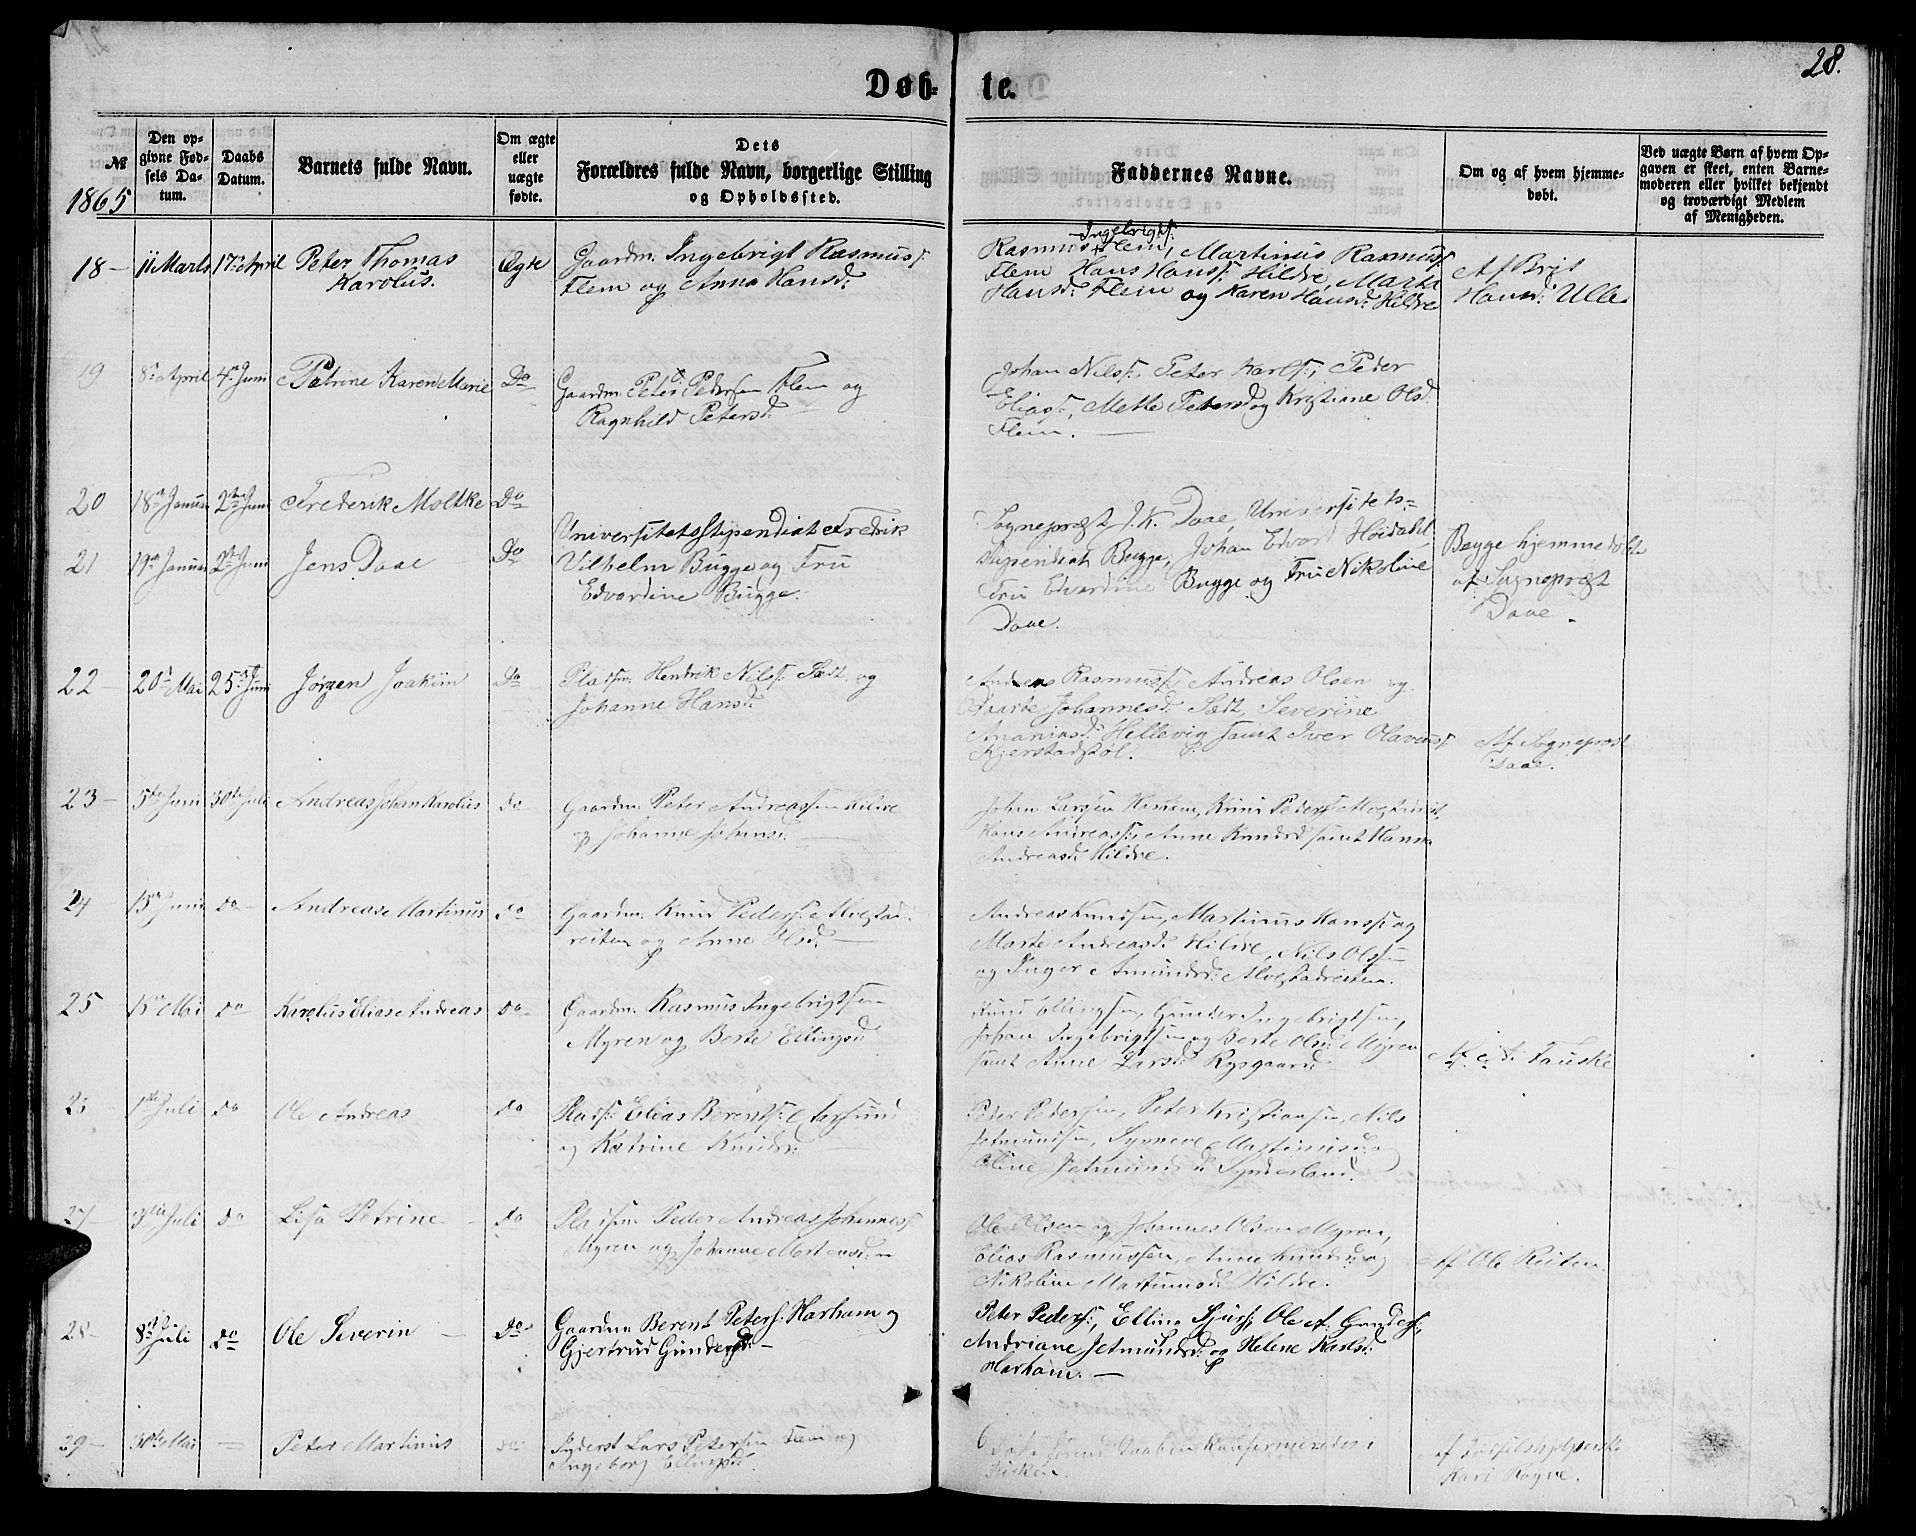 28.
Døb- te.
№
1865
Den op-
givne Fød-
sels Da-
tum.
Daabs
Datum.
Barnets fulde Navn.
Om ægte
eller
uægte
fødte.
Dets
Forældres fulde Navn, borgerlige Stilling
og Opholdssted.
Faddernes Navne.
Om og af hvem hjemme-
døbt.
Ved uægte Børn af hvem Op-
gaven er skeet, enten Barne-
moderen eller hvilket bekjendt
og troværdigt Medlem
af Menigheden.
18 - 11 Marts 17de April Peter Thomas
Karolus.
Ægte
Gaardm. Ingebrigt Rasmuss:
Flem og Anna Hansd:
Ingebrigts:
Rasmus Flem, Martinus Rasmuss:
Flem Hans Hanss: Hildre, Marte
Hansd: Flem og Karen Hansd: Hildre
Af Brit
Hansd: Ulle
19 8de April 4de Juni Petrine Karen Marie Do
Gaardm: Peter Pedersen Flem og
Ragnhild Petersd:
Johan Nilss: Peter Karls:, Peder
Eliass:, Mette Petersd og Kristiane Olsd:
Flem.
20 18de Januar 2den Juni Frederik Moltke Do
21 19de Januar 2den Juni Jens Daae Do
Universitetsstipendiat Fredrik
Vilhelm Bugge og Fru
Edvardine Bugge.
Sognepræst J. K. Daae, Universitets-
stipendiat Bugge, Johan Edvard Høidahl,
Fru Edvardine Bugge og Fru Nikoline
Daae.
Begge hjemmedøbte
af Sognepræst
Daae.
22 20de Mai 25de Juni Jørgen Joakim Do
Pladsm: Hendrik Nilss: Sæt og
Johanne Hansd:
Andreas Rasmuss:, Andreas Olsen og
Marte Johannesd: Sæt, Severine
Ananiasd: Hellevig samt Iver Olavuss:
Kjerstadstøl.
Af Sogneprest
Daae.
23 - 5te Juni 30te Juli Andreas Johan Karolus do
Gaardm: Peter Andreassen Hildre
og Johanne Johansd:
Johan Larsen Hestem, Knud Peders:
Hans Andreass:, Anne Knudsd samt Hanna
Andreasd: Hildre.
24 15de Juni do Andreas Martinus do
Gaardm: Knud Peders: Alvestad-
reiten og Anne Olsd:
Andreas Knudsen, Martinus Hanss: og
Marte Andreasd: Hildre, Nils Olsen
og Inger Amundsd: Alvestadreiten.
25 15de Mai do Karolus Elias Andreas do
Gaardm: Rasmus Ingebrigtsen
Myren og Berte Ellingsd:
Knud Ellingsen, Gunder Ingebrigtsen,
Johan Ingebrigtsen og Berte Olsd: Myren
samt Anne Larsd: Rysgaard
Fauske
26 1ste Juli do Ole Andreas do
Plads: Elias Berents:
og Katrine Knudsd:
Peder Pedersen, Peter Kristiansen, Nils
Jetmundsen, Synneve Martinusd: og
Oline Jetmundsd: Synderland.
27 3die Juli do Lisa Petrine do
Pladsm: Peder Andreas Johanness:
Myren og Johanne Mortensd:
Ole Olsen og Johannes Olsen Myren,
Elias Rasmussen, Anne Knudsd: og
Nikoline Martinusd: Hildre.
Af Ole Reiten
28 8de Juli do Ole Severin - Do
Gaardm: Berent Peters: Harham og
Gjertrud Gundersd: -
Peter Peders:, Elling Sjurs: Ole A. Gunders:,
Andriane Jetmundsd: og Helene Karlsd:
Harham. -
29 - 30te Mai - Peter Martinus do
Inderst Lars Petersen Flem og
Ingeborg Ellingsd:
i
Kirken.
Af
Kari Rogne.